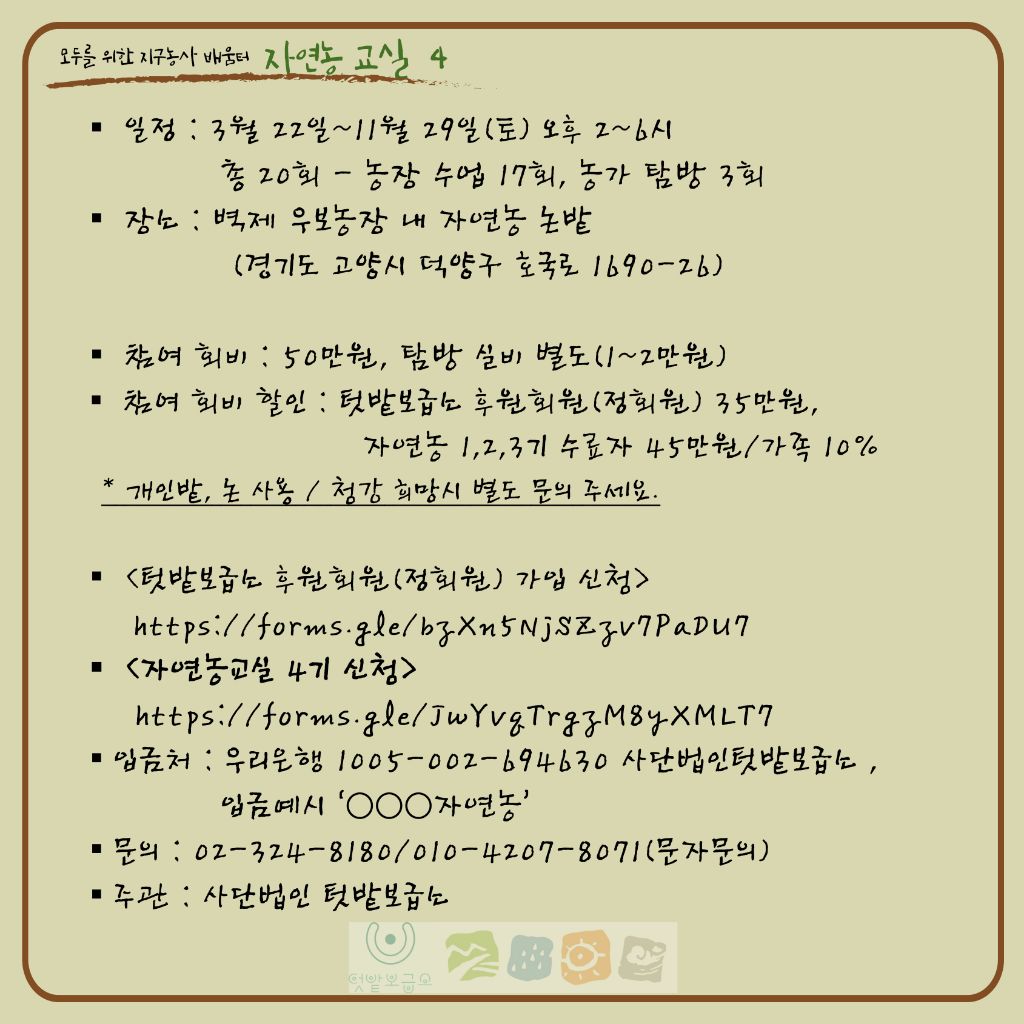 모두를 위한 지구농사 배움터 자연농 교실 4
▪ 일정 : 3월 22일~11월 29일(토) 오후 2~6시
총 20회 - 농장 수업 17회, 농가 탐방 3회
▪ 장소 : 벽제 우보농장 내 자연농 논밭
(경기도 고양시 덕양구 호국로 1690-26)
▪ 참여 회비 : 50만원, 탐방 실비 별도(1~2만원)
▪ 참여 회비 할인 : 텃밭보급소 후원회원(정회원) 35만원,
자연농 1,2,3기 수료자 45만원/가족 10%
* 개인밭, 논 사용 / 청강 희망시 별도 문의 주세요.
▪ <텃밭보급소 후원회원(정회원) 가입 신청>
https://forms.gle/bzXn5NjSZzv7PaDU7
▪ <자연농교실 4기 신청>
https://forms.gle/JwYvgTrgzM8yXMLT7
▪ 입금처 : 우리은행 1005-002-694630 사단법인텃밭보급소 ,
입금예시 ‘○○○자연농’
▪ 문의 : 02-324-8180/010-4207-8071(문자문의)
▪ 주관 : 사단법인 텃밭보급소
텃밭보급소